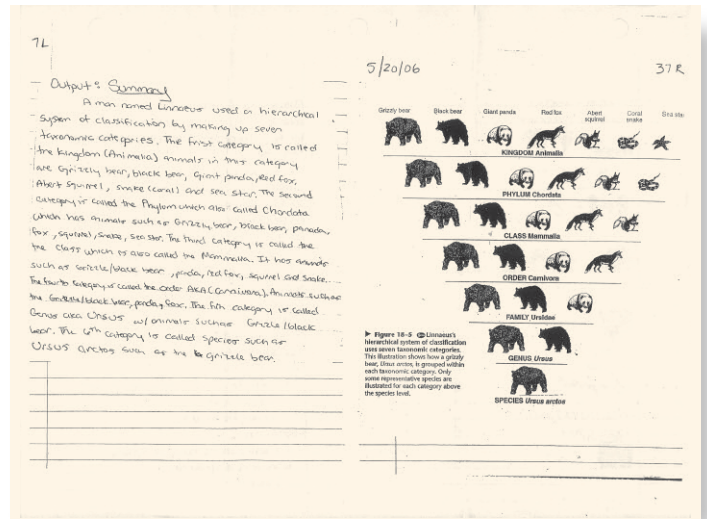 7L
Output: Summary
A man named Linnaeus used a hierarchical
system of classification by making up seven
taxonomic categories. The first category is called
the kingdom (Animalia) animals in this category
are Grizzly bear, black bear, Giant panda, Red fox,
Abert Squirrel, snake (coral) and sea star. The second
category is called the Phylum which also called Chordata
which has animals such as Grizzly bear, black bear, panada,
fox, squirrel, snake, sea star. The third category is called the
the Class which is also called the Mammalia. It has animals
such as Grizzle/black bear, panda, red fox, squirrel and snake.
The fourth category is called the order AKA (Carnivora). Animals such as
the Grizzle/black bear, panda, fox. The fith category is called
Genus aka Ursus w/ animals such as Grizzle/black
bear. The 6th category is called species such as
Ursus arctos such as the grizzle bear.
5/20/06
37R
Grizzly bear Black bear Giant panda Red fox Abert squirrel Coral snake Sea star
KINGDOM Animalia
PHYLUM Chordata
CLASS Mammalia
ORDER Carnivora
FAMILY Ursidae
GENUS Ursus
SPECIES Ursus arctos
► Figure 18-5 Linnaeus's
hierarchical system of classification
uses seven taxonomic categories.
This illustration shows how a grizzly
bear, Ursus arctos, is grouped within
each taxonomic category. Only
some representative species are
illustrated for each category above
the species level.